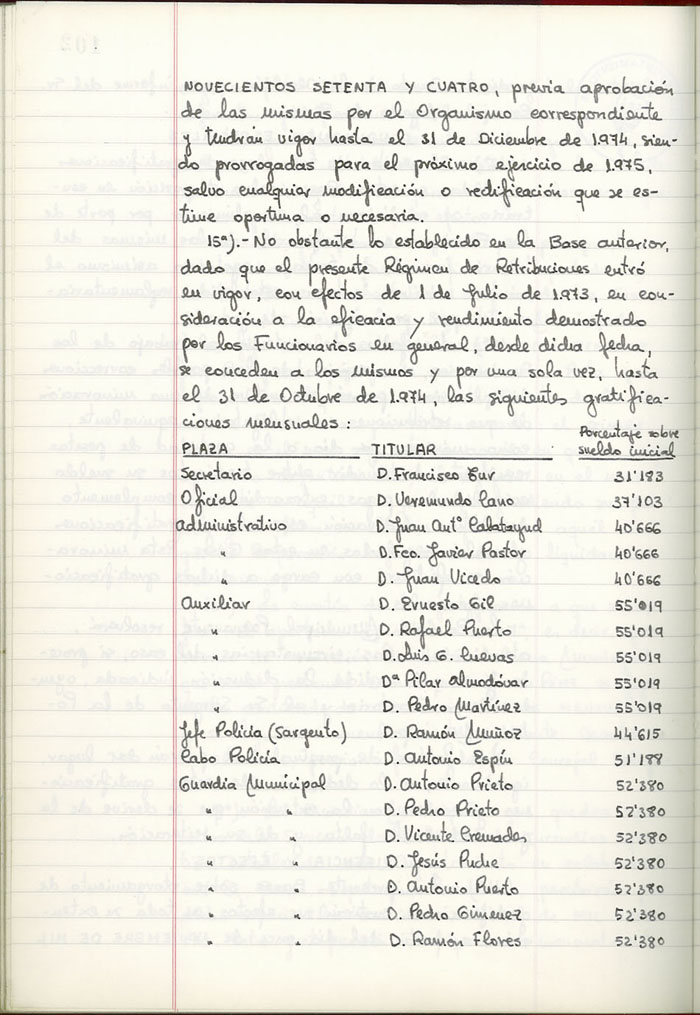 NOVECIENTOS SETENTA Y CUATRO, previa aprobación
de las mismas por el Organismo correspondiente
y tendrán vigor hasta el 31 de Diciembre de 1.974, sien-
do prorrogadas para el próximo ejercicio de 1.975,
salvo cualquier modificación o rectificación que se es-
time oportuna o necesaria.
15ª).- No obstante lo establecido en la Base anterior,
dado que el presente Régimen de Retribuciones entró
en vigor, con efectos de 1 de Julio de 1.973, en con-
sideración a la eficacia y rendimiento demostrado
por los Funcionarios en general, desde dicha fecha,
se conceden a los mismos y por una sola vez, hasta
el 31 de Octubre de 1.974, las siguientes gratifica-
ciones mensuales:
PLAZA TITULAR Porcentaje sobre
sueldo inicial
Secretario D. Francisco Sur 31'183
Oficial D. Veremundo Cano 37'103
Administrativo D. Juan Antº Calatayud 40'666
" D. Fco. Javier Pastor 40'666
" D. Juan Vicedo 40'666
Auxiliar D. Ernesto Gil 55'019
" D. Rafael Puerto 55'019
" D. Luis G. Cuevas 55'019
" Dª Pilar Almodóvar 55'019
" D. Pedro Martínez 55'019
Jefe Policía (Sargento) D. Ramón Muñoz 44'615
Cabo Policía D. Antonio Espín 51'188
Guardia Municipal D. Antonio Prieto 52'380
" " D. Pedro Prieto 52'380
" " D. Vicente Cremades 52'380
" " D. Jesús Puche 52'380
" " D. Antonio Puerto 52'380
" " D. Pedro Gimenez 52'380
" " D. Ramón Flores 52'380